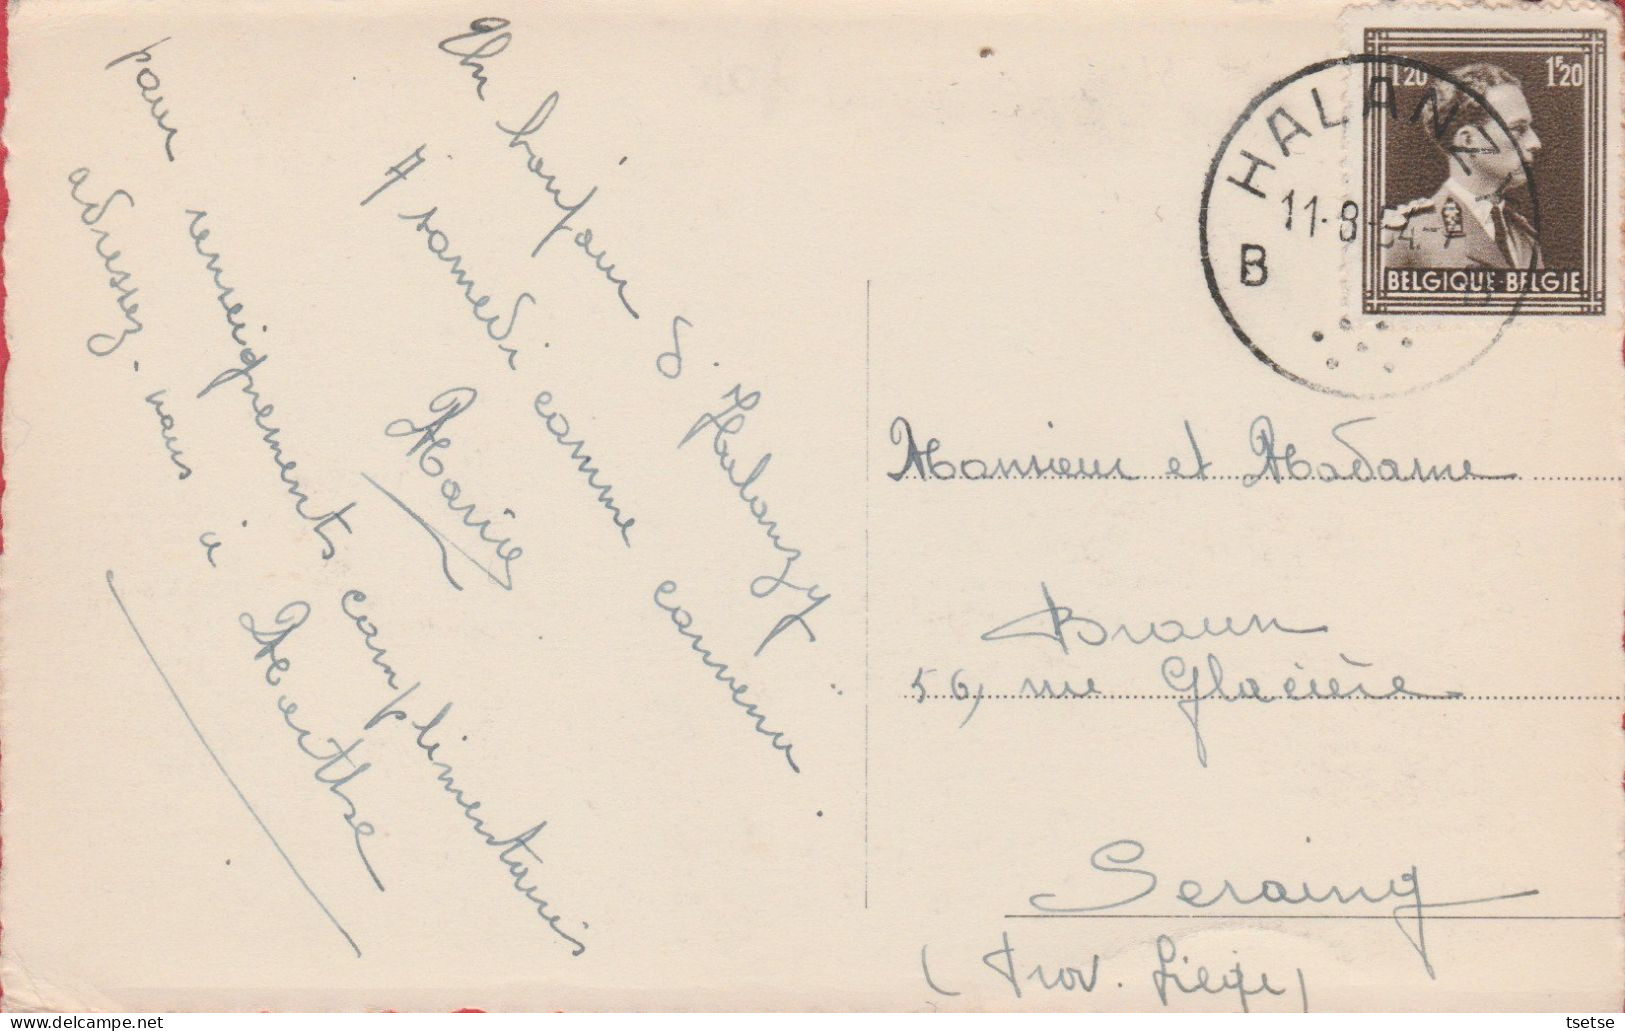 Un bonjour d'Halanzy
A samedi comme convenu
Marie
pour renseignements complémentaires
adressez-vous à
Marthe
1F20 1F20
BELGIQUE-BELGIE
HALANZY
11-8-54-7
B
Monsieur et Madame
Braun
56, rue Glacière
Seraing
(Prov. Liège)
tsetse